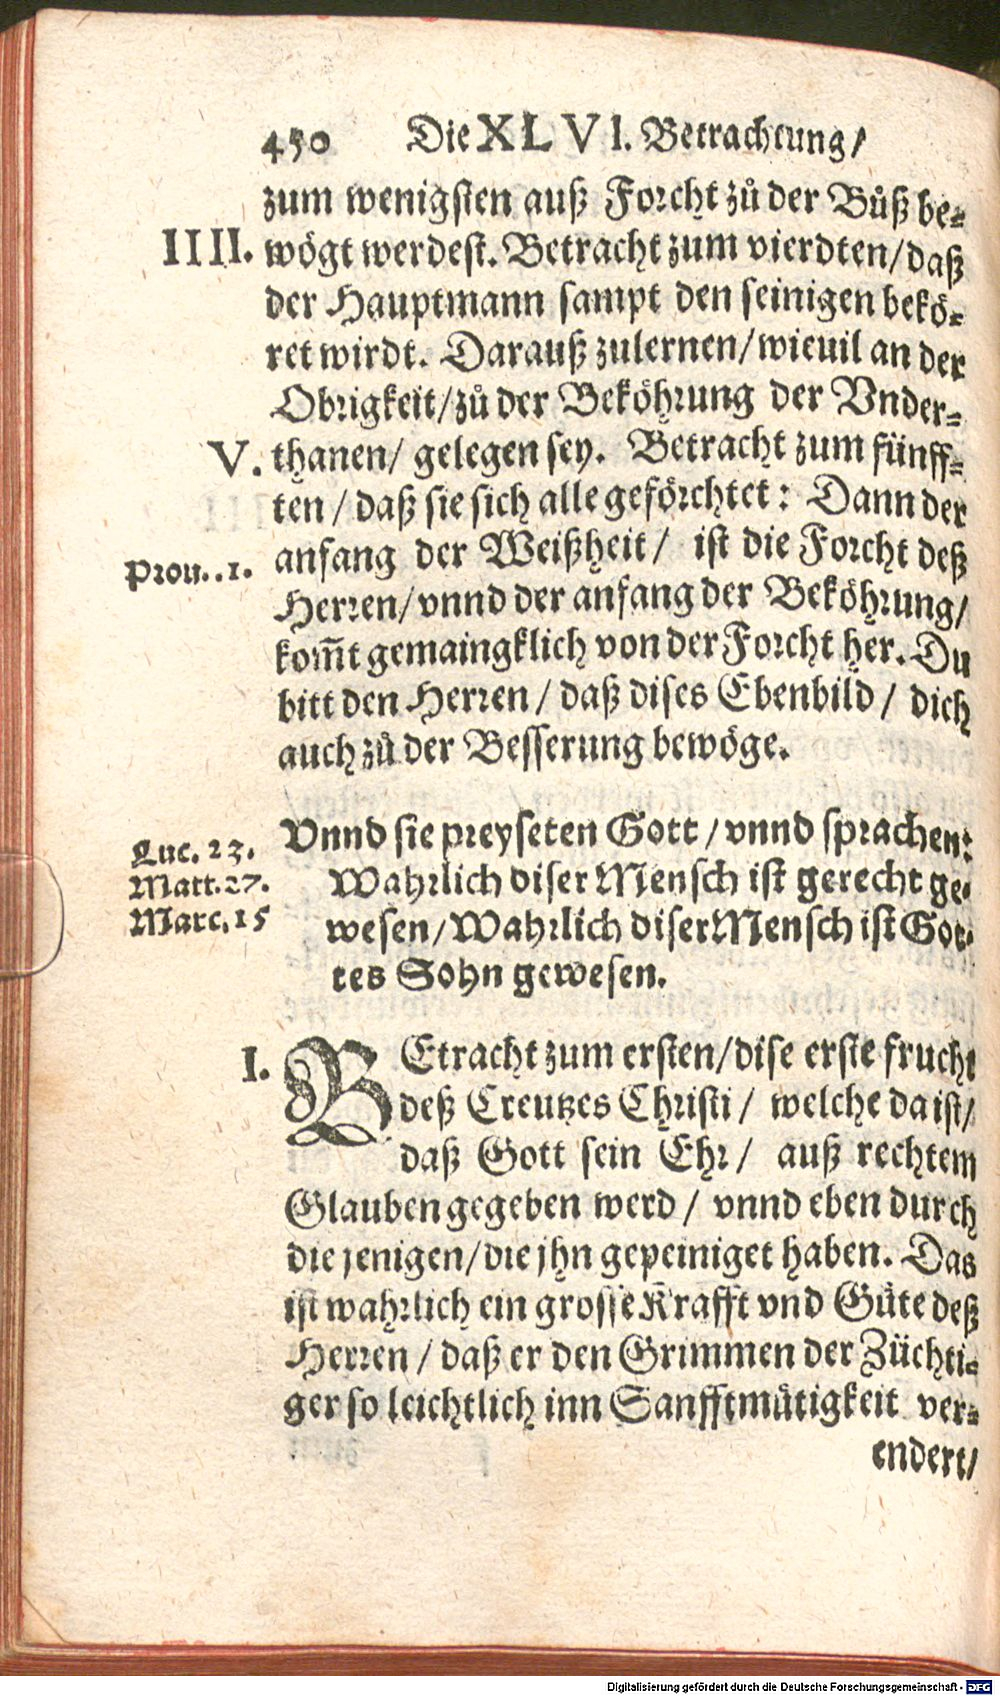 450 Die XLVI. Betrachtung/
zum wenigsten auß Forcht zů der Bůß be-
IIII. wögt werdest. Betracht zum vierdten/daß
der Hauptmann sampt den seinigen bekö-
ret wirdt. Darauß zulernen/wieuil an der
Obrigkeit/zů der Beköhrung der Vnder-
V. thanen/ gelegen sey. Betracht zum fünff-
ten/daß sie sich alle geförchtet: Dann der
anfang der Weißheit/ ist die Forcht deß
Prou..1.
Herren/vnnd der anfang der Beköhrung/
kom̃t gemaingklich von der Forcht her. Du
bitt den Herren/daß dises Ebenbild/ dich
auch zů der Besserung bewöge.
Vnnd sie preyseten Gott/vnnd sprachen:
Luc. 23.
Wahrlich diser Mensch ist gerecht ge-
Matt.27.
wesen/Wahrlich diser Mensch ist Got-
Marc.15
tes Sohn gewesen.
I. BEtracht zum ersten/dise erste frucht
deß Creutzes Christi/ welche da ist/
daß Gott sein Ehr/ auß rechtem
Glauben gegeben werd/ vnnd eben durch
die jenigen/die jhn gepeiniget haben. Das
ist wahrlich ein grosse Krafft vnd Güte deß
Herren/daß er den Grimmen der Züchti-
ger so leichtlich inn Sanfftmütigkeit ver-
endert/
Digitalisierung gefördert durch die Deutsche Forschungsgemeinschaft - DFG